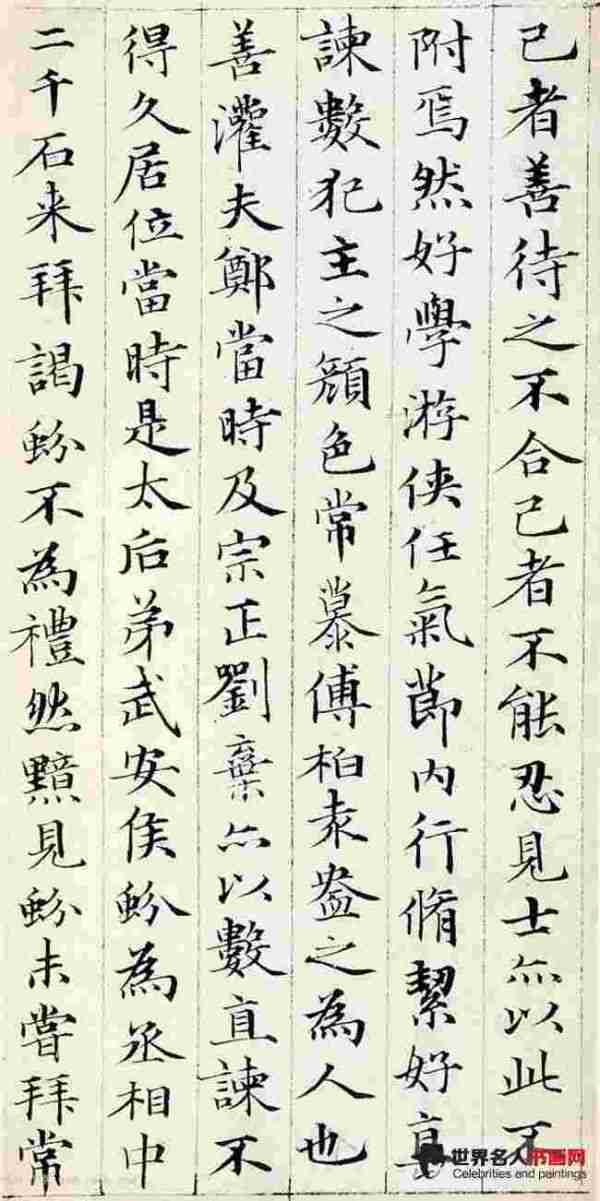 己者善待之不合己者不能忍見士亦以此不
附焉然好學游俠任氣節内行脩絜好直
諫數犯主之顏色常慕傅柏袁盎之為人也
善灌夫鄭當時及宗正劉棄亦以數直諫不
得久居位當時是太后弟武安侯蚡為丞相中
二千石来拜謁蚡不為禮然黯見蚡未嘗拜常
世界名人书画网
Celebrities and paintings